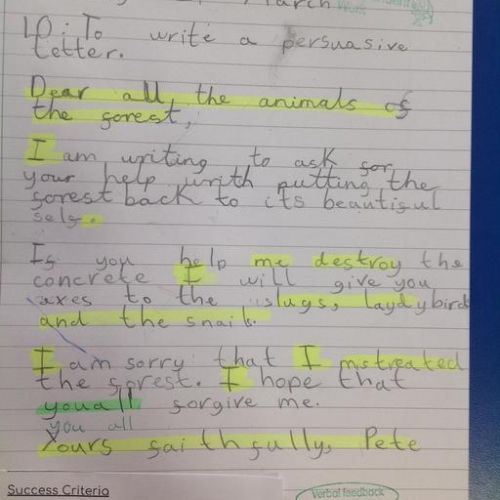 March
LO: To write a persuasive
letter.
Dear all the animals of
the forest,
I am writing to ask for
your help with putting the
forest back to its beautiful
self.
If you help me destroy the
concrete I will give you
axes to the slugs, laydybird
and the snail.
I am sorry that I mstreated
the forest. I hope that
youall forgive me.
you all
Yours faithfully, Pete
Success Criteria
Verbal feedback